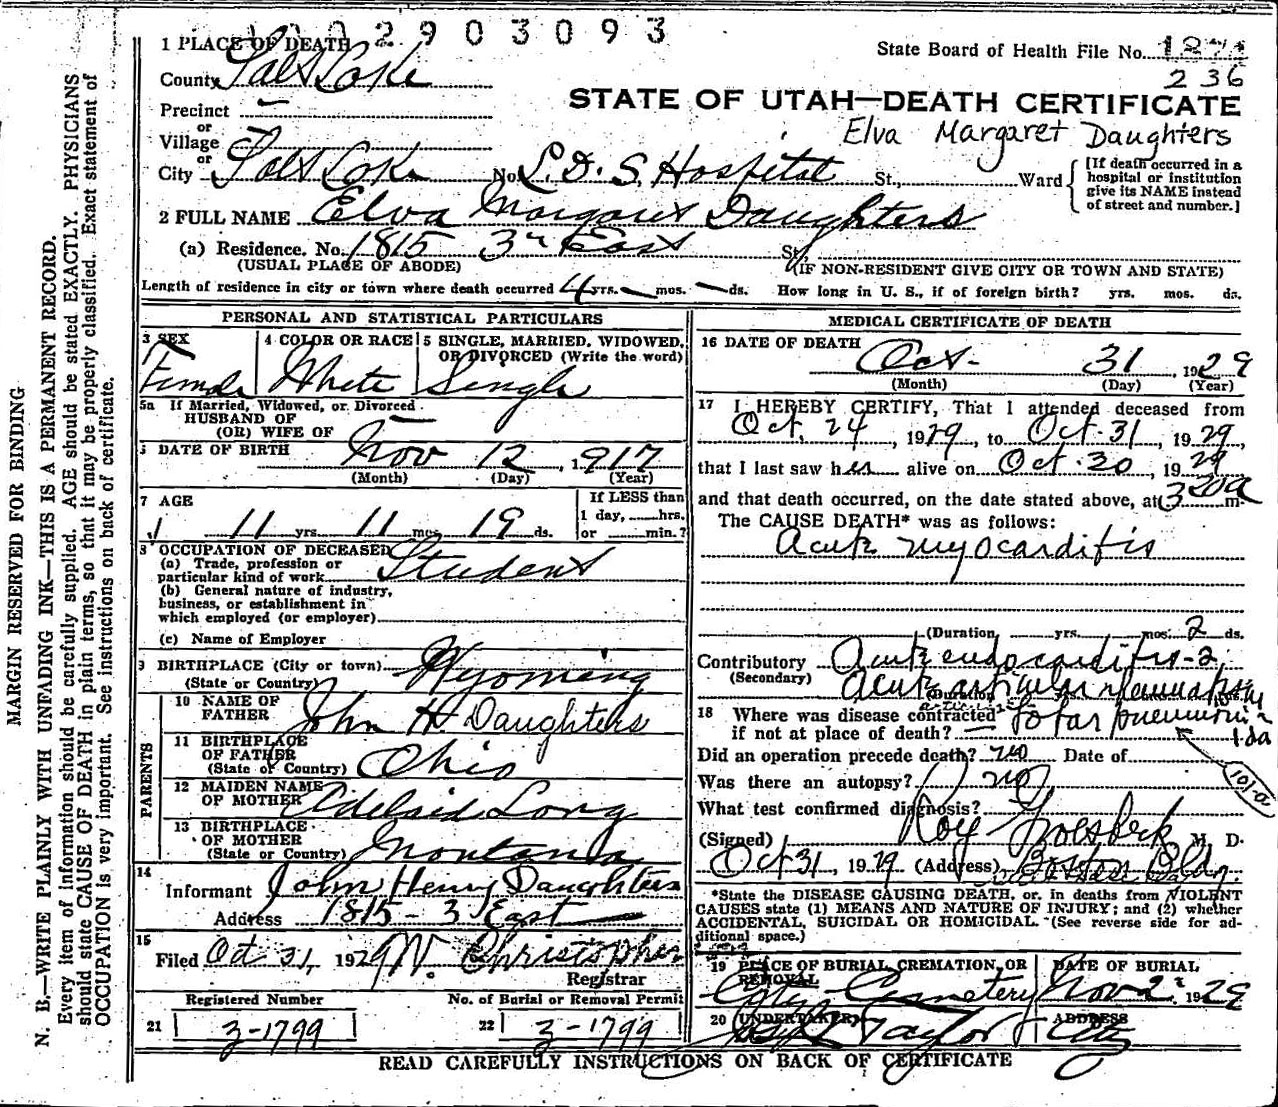 2903093
1 PLACE OF DEATH
State Board of Health File No. 1874
County Salt Lake
236
Precinct —
STATE OF UTAH—DEATH CERTIFICATE
or
Village —
Elva Margaret Daughters
or
City Salt Lake No. L.D.S. Hospital St., Ward
[If death occurred in a
hospital or institution
give its NAME instead
of street and number.]
2 FULL NAME Elva Margaret Daughters
(a) Residence. No. 1815 3rd East St.,
(USUAL PLACE OF ABODE) (IF NON-RESIDENT GIVE CITY OR TOWN AND STATE)
Length of residence in city or town where death occurred 4 yrs. — mos. — ds. How long in U. S., if of foreign birth? yrs. mos. ds.
PERSONAL AND STATISTICAL PARTICULARS
3 SEX
Female
4 COLOR OR RACE
White
5 SINGLE, MARRIED, WIDOWED,
OR DIVORCED (Write the word)
Single
5a If Married, Widowed, or Divorced
HUSBAND OF
(OR) WIFE OF —
DATE OF BIRTH Nov 12, 1917
(Month) (Day) (Year)
7 AGE
11 yrs. 11 mos. 19 ds.
If LESS than
1 day, hrs.
or min.?
8 OCCUPATION OF DECEASED
(a) Trade, profession or
particular kind of work Student
(b) General nature of industry,
business, or establishment in
which employed (or employer)
(c) Name of Employer
9 BIRTHPLACE (City or town)
(State or Country) Wyoming
PARENTS
10 NAME OF
FATHER John H. Daughters
11 BIRTHPLACE
OF FATHER
(State or Country) Ohio
12 MAIDEN NAME
OF MOTHER Adelaid Long
13 BIRTHPLACE
OF MOTHER
(State or Country) Montana
14
Informant John Henry Daughters
Address 1815 - 3 East
15
Filed Oct 31, 1929 W. Christopher
Registrar
Registered Number No. of Burial or Removal Permit
21 3-1799 22 3-1799
MEDICAL CERTIFICATE OF DEATH
16 DATE OF DEATH
Oct 31, 1929
(Month) (Day) (Year)
17 I HEREBY CERTIFY, That I attended deceased from
Oct, 24, 1929, to Oct 31, 1929,
that I last saw her alive on Oct 30, 1929
and that death occurred, on the date stated above, at 320a m.
The CAUSE DEATH* was as follows:
Acute myocarditis
(Duration yrs. mos. 2 ds.
Contributory Acute endocarditis - 2
(Secondary) Acute articular rheumatism
18 Where was disease contracted
if not at place of death? — Lobar pneumonia
1 da
101-a
Did an operation precede death? no Date of
Was there an autopsy? no
What test confirmed diagnosis?
(Signed) Roy Groesbeck M. D.
Oct 31, 1929 (Address) Boston Bldg
*State the DISEASE CAUSING DEATH, or, in deaths from VIOLENT
CAUSES state (1) MEANS AND NATURE OF INJURY; and (2) whether
ACCIDENTAL, SUICIDAL OR HOMICIDAL. (See reverse side for ad-
ditional space.)
19 PLACE OF BURIAL, CREMATION, OR
REMOVAL
City Cemetery
DATE OF BURIAL
Nov 2 1929
20 (UNDERTAKER) Taylor
ADDRESS
City
READ CAREFULLY INSTRUCTIONS ON BACK OF CERTIFICATE
MARGIN RESERVED FOR BINDING
N. B.—WRITE PLAINLY WITH UNFADING INK—THIS IS A PERMANENT RECORD.
Every item of information should be carefully supplied. AGE should be stated EXACTLY. PHYSICIANS
should state CAUSE OF DEATH in plain terms, so that it may be properly classified. Exact statement of
OCCUPATION is very important. See instructions on back of certificate.